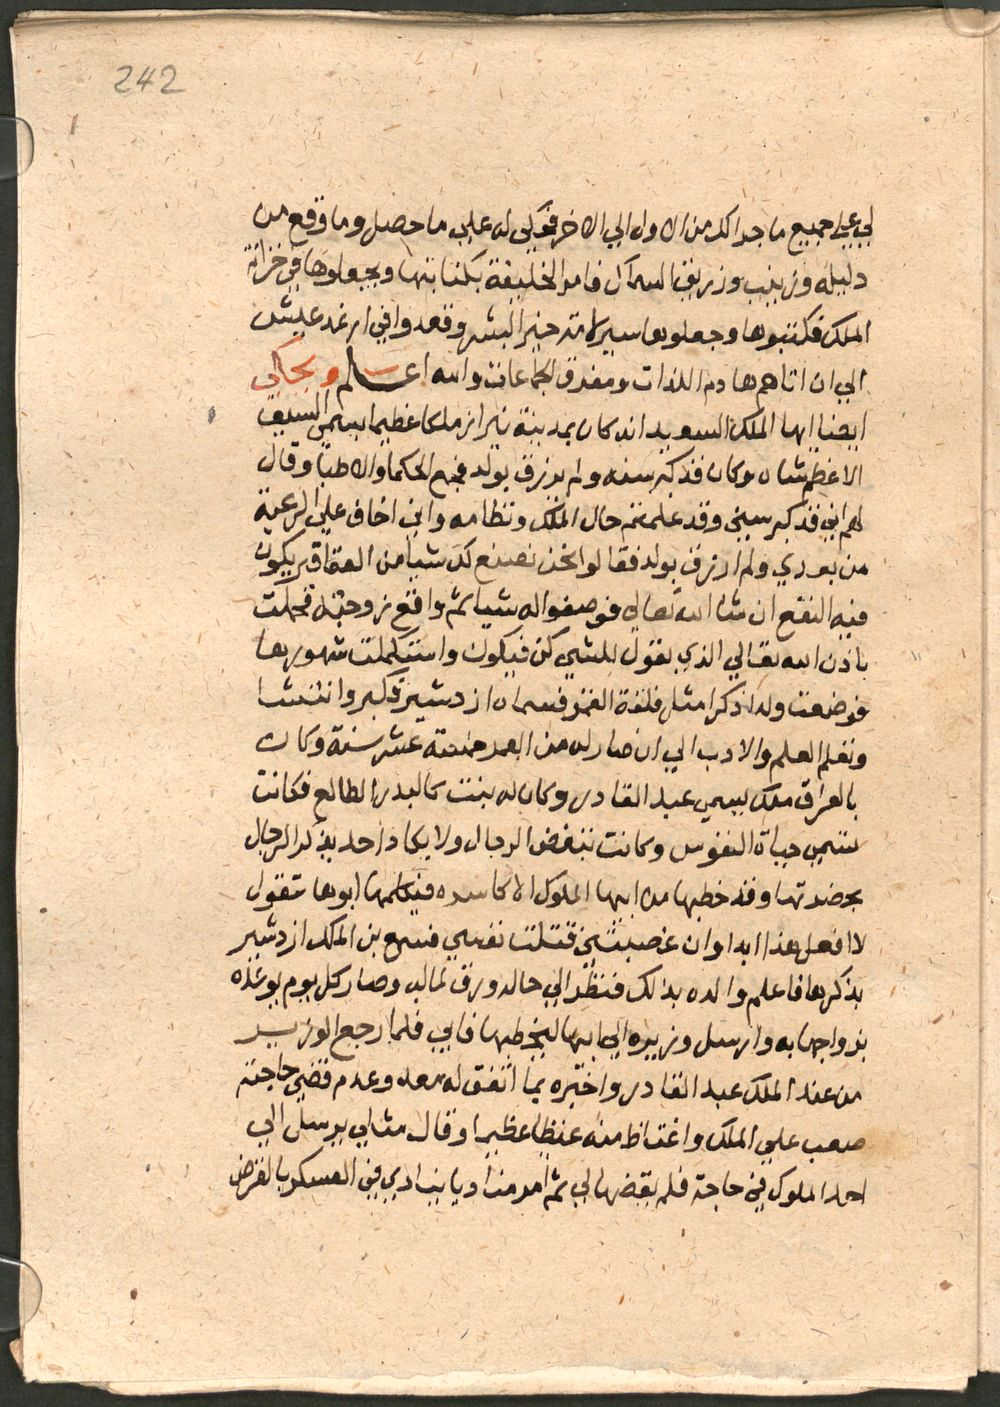 242
لي علي جميع ما جرالك من الاول الي الاخر فحكي له علي ما حصل وما وقع من
دليله وزينب وزريق السماك فامر الخليفة بكتابتها ويجعلوها في خزانة
الملك فكتبوها وجعلوها سيرة لامة خير البشر وقعدوا في ارغد عيش
الي ان اتاهم هادم اللذات ومفرق الجماعات والله اعلم ويحاكي
ايضا ايها الملك السعيد انه كان بمدينة شيراز ملكا عظيما يسمي السيف
الاعظم شاه وكان قد كبر سنه ولم يرزق بولد فجمع الحكما والاطبا وقال
لهم اني قد كبر سيني وقد علمتم حال الملك ونظامه واني اخاف علي الرعية
من بعدي ولم ارزق بولد فقالوا نحن نصنع لك شيا من العقاقير يكون
فيه النفع ان شا الله تعالي فوصفوا له شيا ثم واقع زوجته فحملت
باذن الله تعالي الذي يقول للشي كن فيكون واستكملت شهورها
فوضعت ولدا ذكرا مثل فلقة القمر فسماه ازدشير فكبر وانتشا
وتعلم العلم والادب الي ان صار له من العمر خمسة عشر سنة وكان
بالعراق ملك يسمي عبد القادر وكان له بنت كالبدر الطالع فكانت
تسمي حياة النفوس وكانت تبغض الرجال ولا يكاد احد يذكر الرجال
بحضرتها وقد خطبها من ابيها الملوك الاكاسره فيكلمها ابوها تقول
لا افعل هذا ابدا وان غصبتني قتلت نفسي فسمع بن الملك ازدشير
بذكرها فاعلم والده بذلك فنظر الي حاله ورق لماله وصار كل يوم يوعده
بزواجها به وارسل وزيره الي ابيها ليخطبها فابي فلما رجع الوزير
من عند الملك عبد القادر واخبره بما اتفق له معه وعدم قضي حاجته
صعب علي الملك واغتاظ منه غيظا عظيما وقال مثلي يرسل الي
احد الملوك في حاجة فلم يقضها لي ثم امر مناديا ينادي في العسكر بالغرض